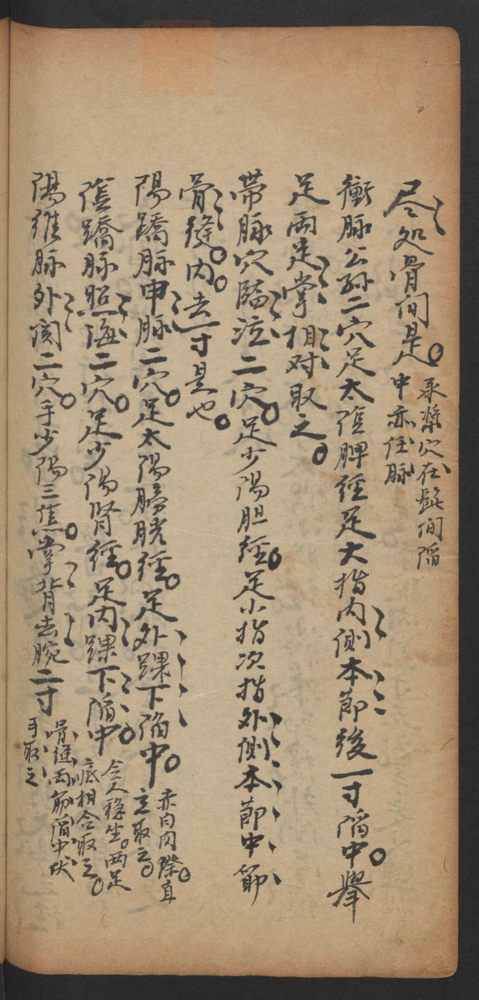 尽处骨间是。承漿穴在髭间陷
中亦任脉
衝脉公孙二穴足太阴脾经足大指内側本節後一寸陷中。舉
足两足掌相对取之。
帶脉穴臨泣二穴。足少陽胆经。足小指次指外側本節中節
骨缝。内。去一寸是也。
陽蹻脉申脉二穴。足太陽膀胱经。足外踝下陷中。赤白肉際直
立取之。
陰蹻脉照海二穴。足少陽肾经。足内踝下陷中。令人稳坐。两足
底相合取之。
陽維脉外関二穴。手少陽三焦。掌背去腕二寸骨缝两筋陷中伏
手取之